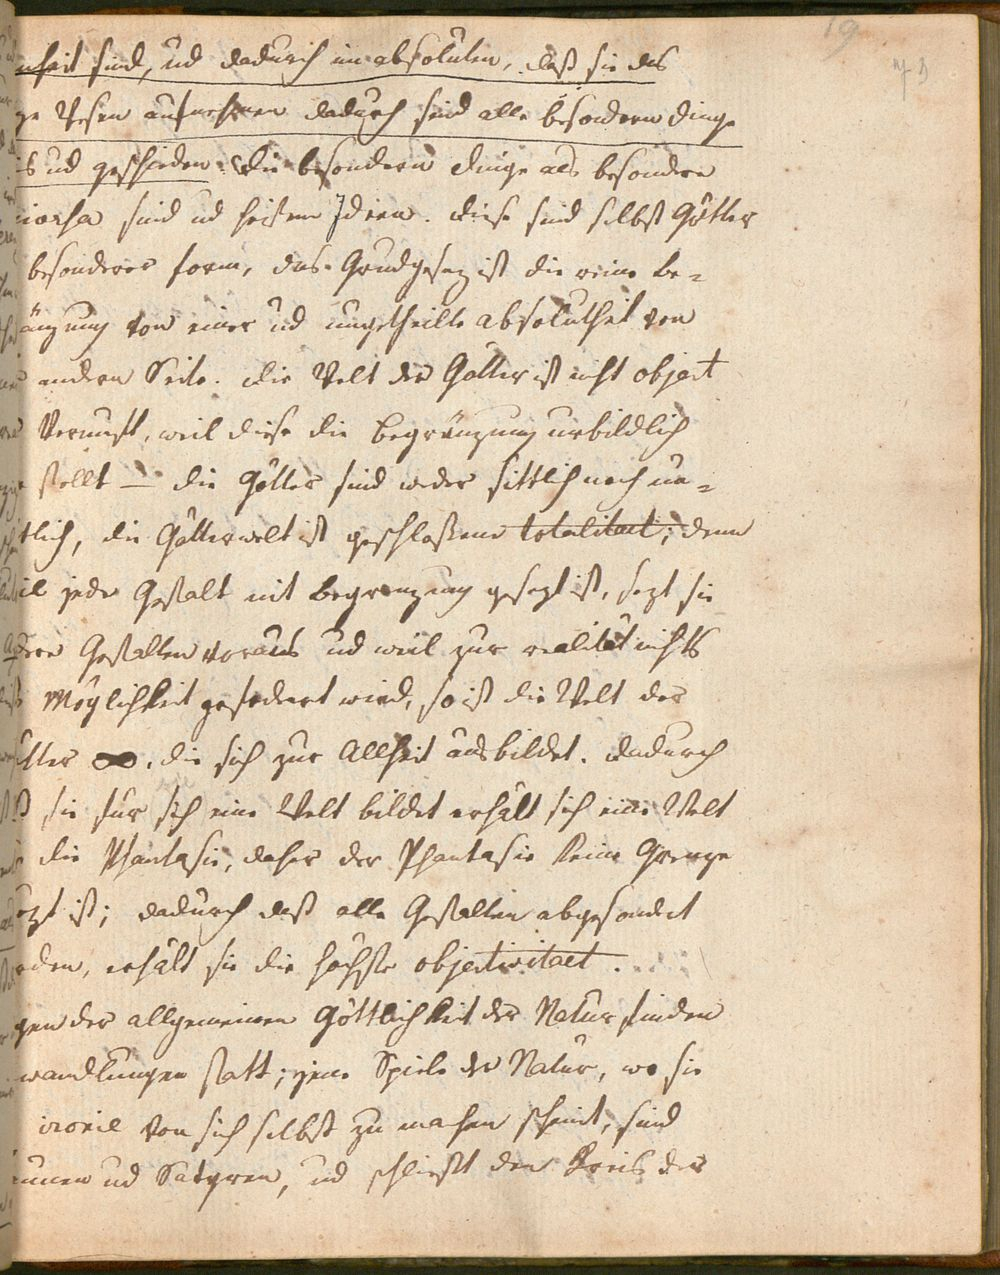 19
nheit sind, ud dadurch im absoluten, daß sie das
ze Wesen aufnehmen dadurch sind alle besondern dinge
s ud geschieden. die besondern dinge als besondre
sind ud heißen Ideen. diese sind selbst Götter
besonderer form, das Grundgesez ist die reine Be-
änzung von einer ud ungetheilte absolutheit von
andern Seite. die Welt der Götter ist nicht object
Vernunft, weil diese die begränzung urbildlich
stellt — die Götter sind weder sittlich noch un-
tlich, die Götterwelt ist geschloßene totalitaet; denn
il jede Gestalt mit begrenzung gesezt ist, sezt sie
dere Gestalten voraus ud weil zur realität nichts
Möglichkeit gefodert wird, so ist die Welt der
ötter ∞, die sich zur Allheit ausbildet. dadurch
ß sie für sich eine Welt bildet erhält sich eine Welt
die Phantasie, daher der Phantasie keine Grenze
ezt ist; dadurch daß alle Gestalten abgesondert
rden, erhält sie die höchste objectivitaet.
gen der allgemeinen Göttlichkeit der Natur finden
wandlungen statt; jene Spiele der Natur, wo sie
von sich selbst zu machen scheint, sind
aunen ud Satyren, ud schließt den Kreis der